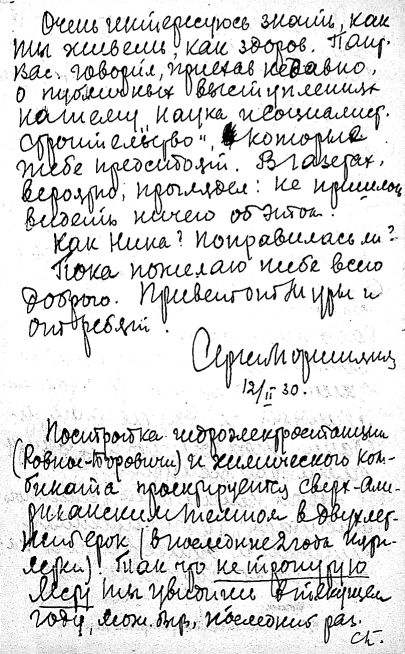 Очень интересуюсь знать, как
ты живешь, как здоров. Пант.
Вас. говорил, приехав недавно,
о публичных выступлениях
на тему „Наука и социалист.
строительство", которые
тебе предстоят. В газетах,
вероятно, проглядел: не пришлось
видеть ничего об этом.
Как Нина? Поправилась ли?
Пока пожелаю тебе всего
доброго. Привет от Шуры и
от ребят.
Сергей
12/II 30.
Постройка гидроэлектростанции
(Ровное-Боровичи) и химического ком-
бината проектируется сверх-аме-
риканским темпом в двухлет-
ний срок (в последние 2 года
). Так что нетронутую
Мсту ты увидишь в текущем
году, мож. быть, последний раз.